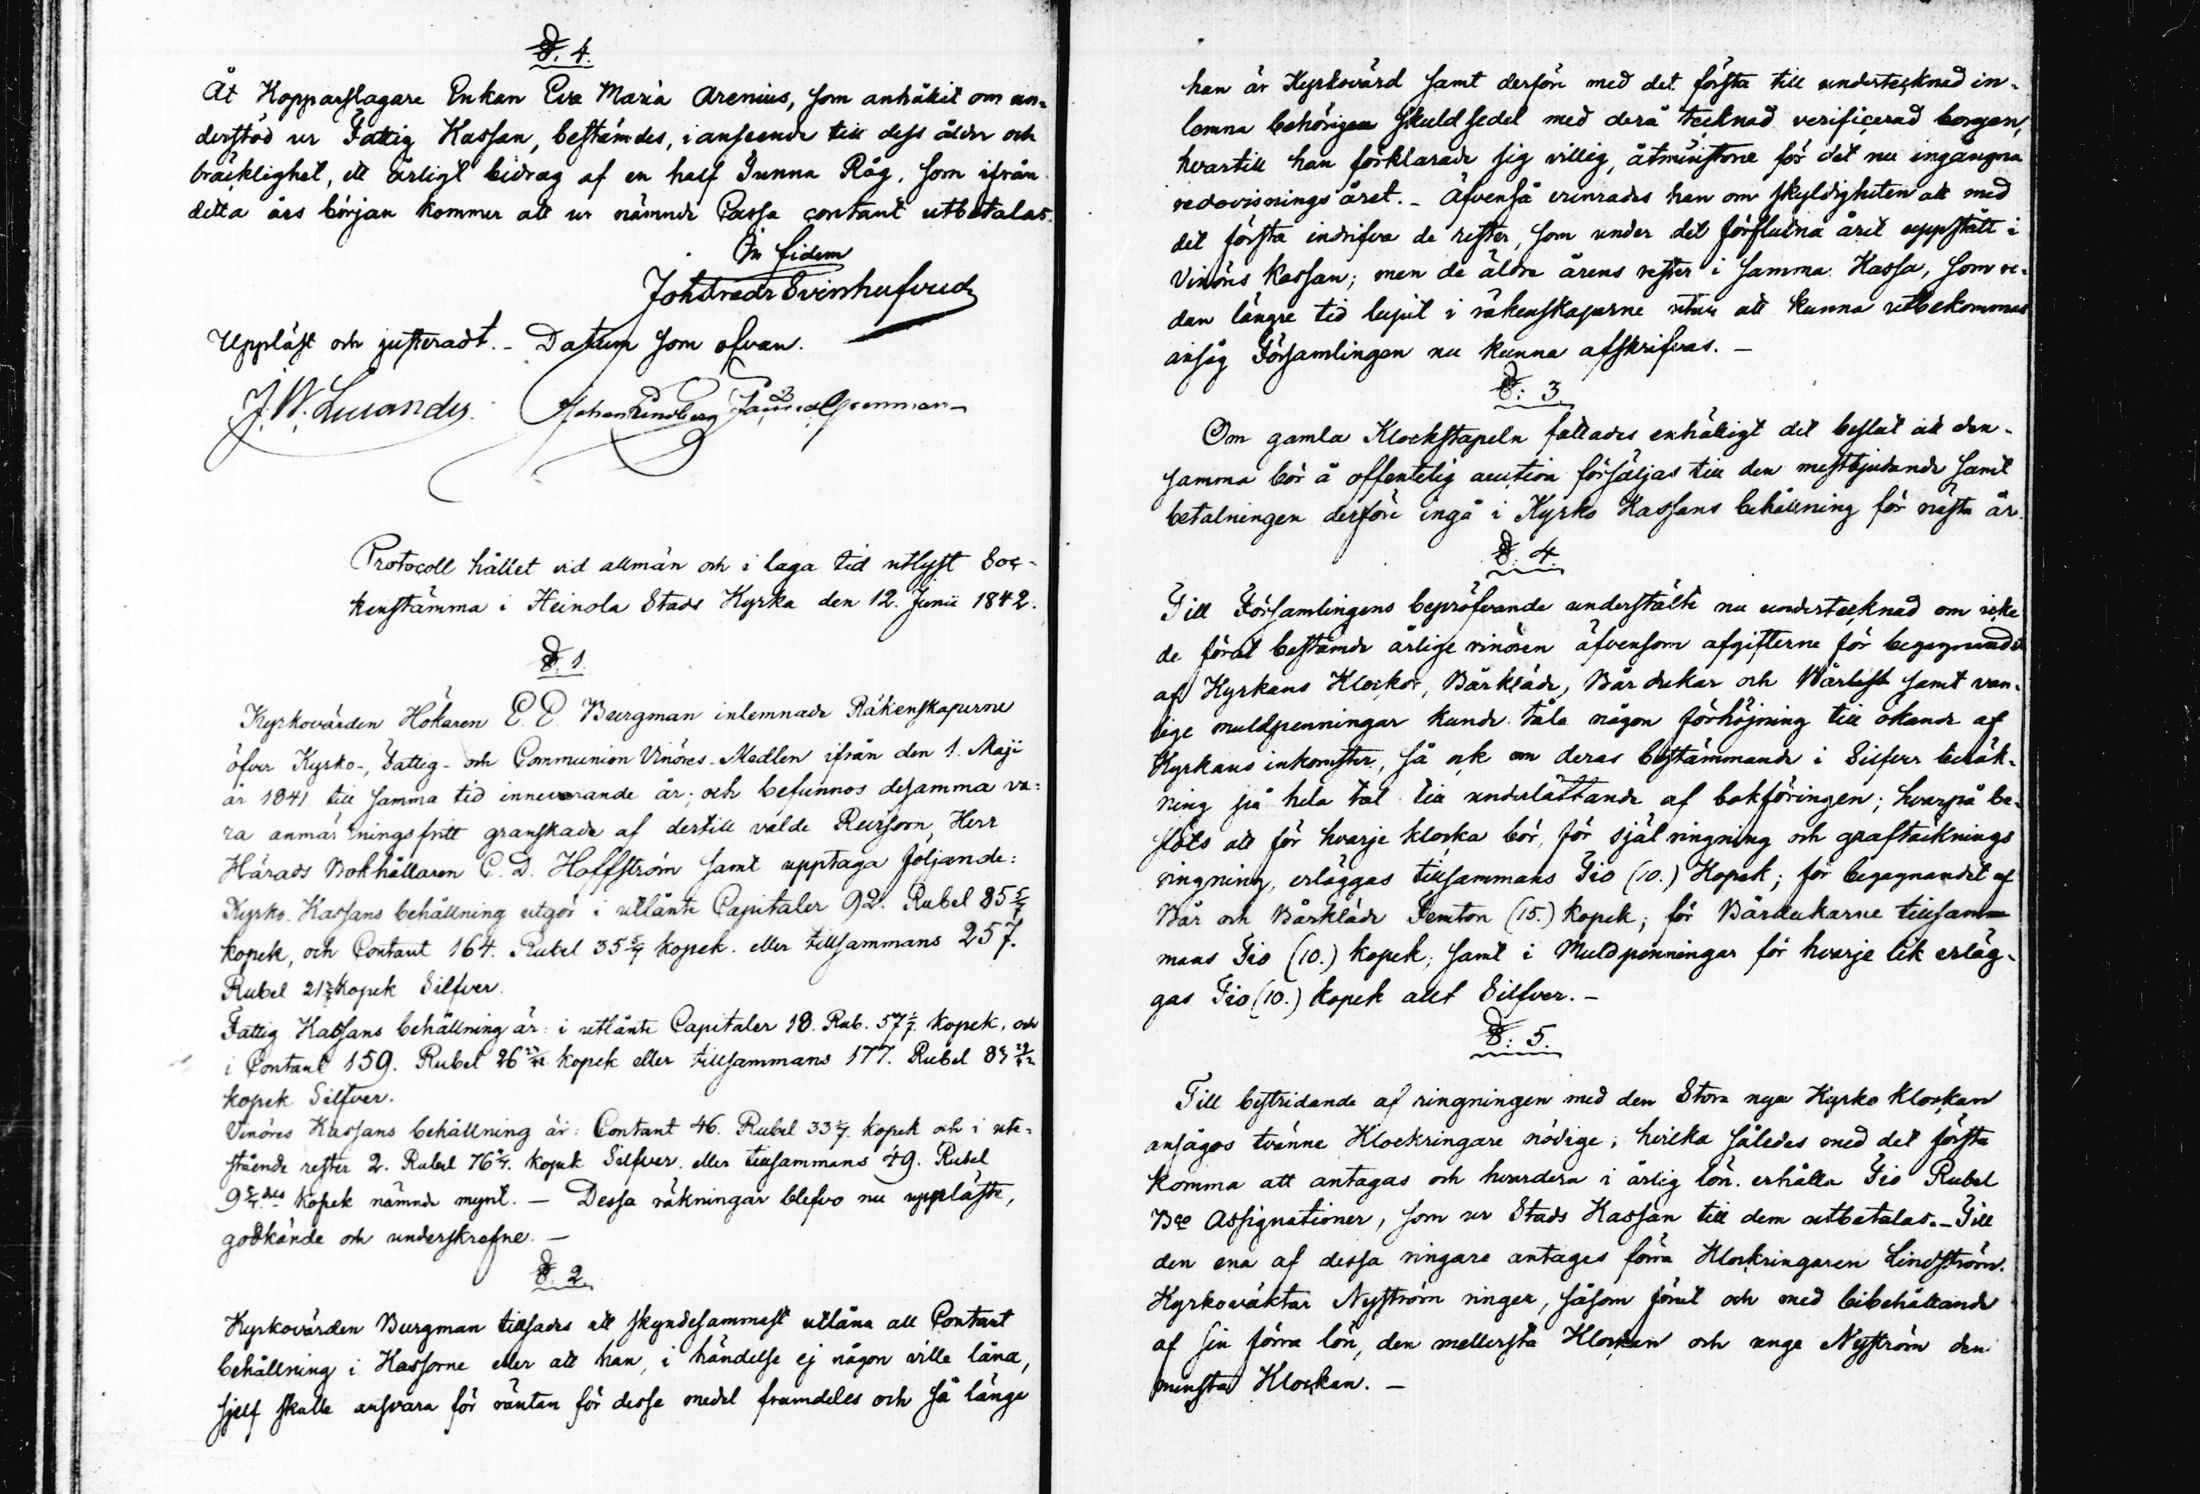 §. 4.
Åt Kopparslagare Enkan Eva Maria Arenius, som anhållit om un-
derstöd ur Fattig Kassan, bestämdes, i anseende till dess ålder och
bräcklighet, ett årligt bidrag af en half Tunna Råg, som ifrån
detta års början kommer att ur nämnde Cassa contant utbetalas.
In fidem
Joh Fredr Svinhufvud
Uppläst och justeradt. - Datum som ofvan.
J. W. Lucander Johan Lindberg
Protocoll hållet vid allmän och i laga tid utlyst Soc-
kenstämma i Heinola Stads Kyrka den 12. Junii 1842.
§. 1.
Kyrkovärden Hökaren C. E. Burgman inlemnade Räkenskaperne
öfver Kyrko-, Fattig- och Communion Vinöres-Medlen ifrån den 1. Maji
år 1841 till samma tid innevarande år; och befunnos desamma va-
ra anmärkningsfritt granskade af dertill valde Revisorn, Herr
Härads Bokhållaren C. D. Hoffström samt upptaga följande:
Kyrko-Kassans behållning utgör i utlånte Capitaler 92. Rubel 85 5/7
kopek, och Contant 164. Rubel 35 5/7 kopek. eller tillsammans 257.
Rubel 21 3/7 kopek Silfver.
Fattig Kassans behållning är: i utlånte Capitaler 18. Rub. 57 1/7 kopek, och
i Contant 159. Rubel 26 kopek eller tillsammans 177. Rubel
kopek Silfver.
Vinöres Kassans behållning är: Contant 46. Rubel 33 kopek och i ute-
stående rester 2. Rubel 76 kopek Silfver. eller tillsammans 49. Rubel
9 kopek nämnde mynt. - Dessa räkningar blefvo nu uppläste,
godkände och underskrefne. -
§. 2.
Kyrkovärden Burgman tillsades att skyndesammast utlåna all Contant
behållning i Kassorne eller att han, i händelse ej någon ville låna,
sjelf skulle ansvara för räntan för desse medel framdeles och så länge
han är Kyrkovärd samt derföre med det första till undertecknad in-
lemna behörigen skuldsedel med derå tecknad verificerad borgen,
hvartill han förklarade sig villig, åtminstone för det nu ingångna
redovisnings året. - Äfvenså erinrades han om skyldigheten att med
det första indrifva de rester, som under det förflutna året uppstått i
Vinöris kassan; men de äldre årens rester i samma Kassa, som re-
dan längre tid lupit i räkenskaperne utan att kunna utbekommas
ansåg Församlingen nu kunna afskrifvas. -
§: 3.
Om gamla Klockstapeln fattades enhälligt det beslut att den-
samma bör å offentelig auction försäljas till den mestbjudande samt
betalningen derföre ingå i Kyrko Kassans behållning för nästa år.
§. 4.
Till Församlingens bepröfvande underställte nu undertecknad om icke
de förut bestämde årlige vinören äfvensom afgifterne för begagnande
af Kyrkans Klockor, Bårkläde, Bår dukar och samt van-
lige muldpenningar kunde tåla någon förhöjning till ökande af
Kyrkans inkomster, så ock om deras bestämmande i Silfver beräk-
ning på hela tal till underlättande af bokföringen; hvarpå be-
slöts att för hvarje klocka bör, för själ ringning och graftäcknings
ringning, erläggas tillsammans Tio (10.) Kopek; för begagnandet af
Bår och Bårkläde Femton (15.) kopek; för Bårdukarne tillsam-
mans Tio (10.) kopek; samt i Muldpenningar för hvarje lik erläg-
gas Tio (10.) kopek allt Silfver. -
§: 5.
Till bestridande af ringningen med den Stora nya Kyrko klockan
ansågos tvänne Klockringare nödige; hvilka således med det första
komma att antagas och hvardera i årlig lön erhålla Tio Rubel
Bco Assignationer, som ur Stads Kassan till dem utbetalas. - Till
den ena af dessa ringare antages förra Klockringaren Lindström.
Kyrkovaktar Nyström ringer, såsom förut och med bibehållande
af sin förra lön, den mellersta Klockan och unge Nyström den
minsta Klockan. -